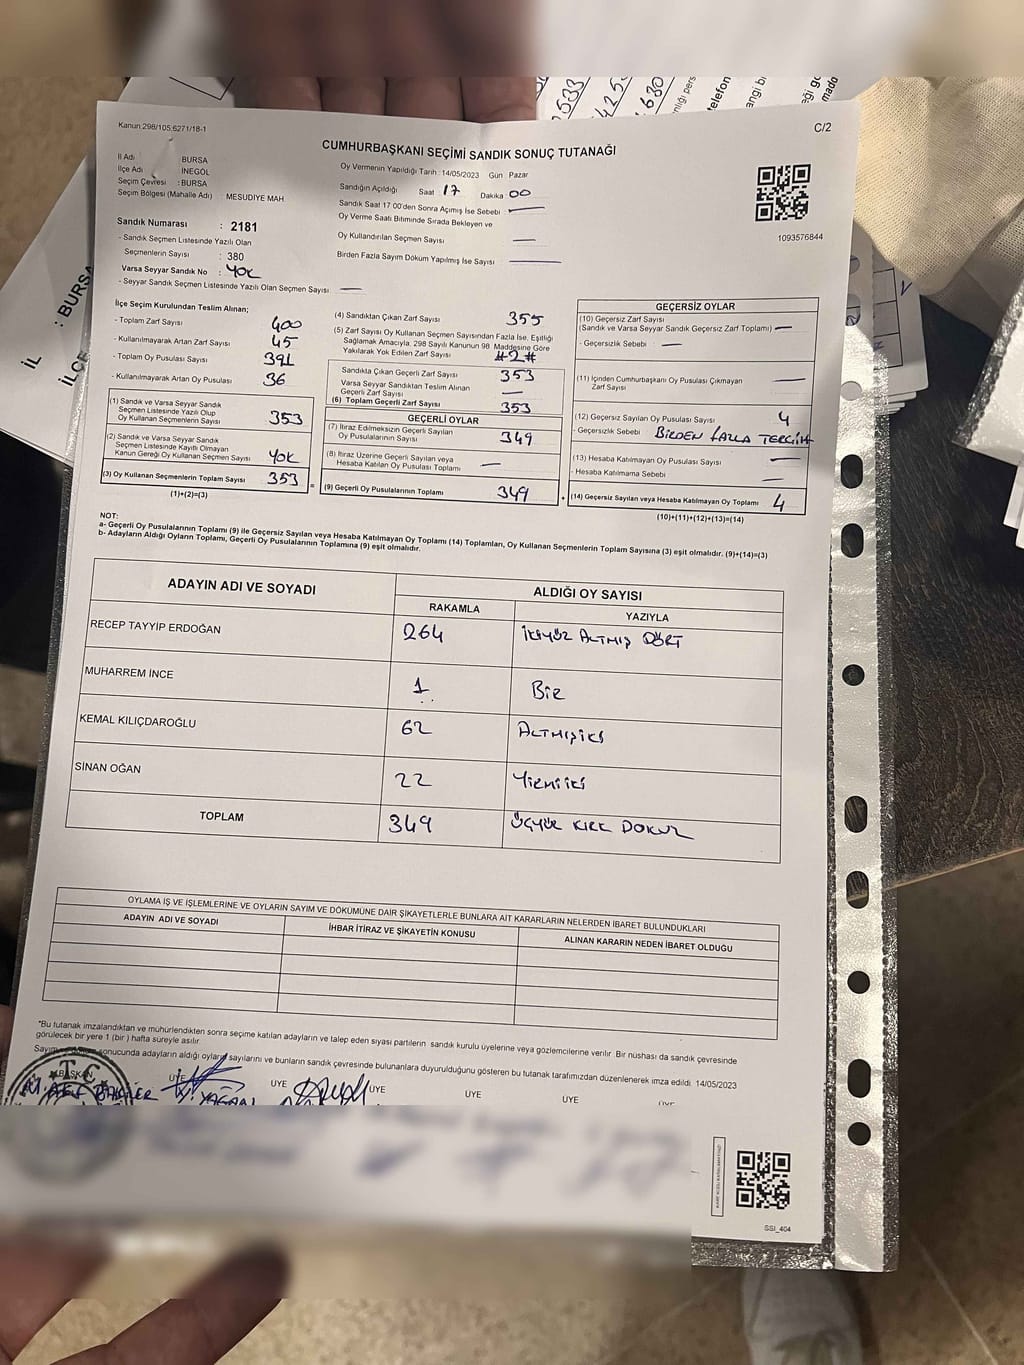 Kanun 298/105,6271/18-1
C/2
CUMHURBAŞKANI SEÇİMİ SANDIK SONUÇ TUTANAĞI
İl Adı : BURSA
İlçe Adı : İNEGÖL
Seçim Çevresi : BURSA
Seçim Bölgesi (Mahalle Adı) : MESUDİYE MAH
Sandık Numarası : 2181
- Sandık Seçmen Listesinde Yazılı Olan
Seçmenlerin Sayısı : 380
Varsa Seyyar Sandık No : YOK
- Seyyar Sandık Seçmen Listesinde Yazılı Olan Seçmen Sayısı: —
Oy Vermenin Yapıldığı Tarih : 14/05/2023 Gün Pazar
Sandığın Açıldığı Saat 17 Dakika 00
Sandık Saat 17 00'den Sonra Açımış İse Sebebi : —
Oy Verme Saati Bitiminde Sırada Bekleyen ve
Oy Kullandırılan Seçmen Sayısı —
Birden Fazla Sayım Döküm Yapılmış İse Sayısı —
1093576844
İlçe Seçim Kurulundan Teslim Alınan;
- Toplam Zarf Sayısı 400
- Kullanılmayarak Artan Zarf Sayısı 45
- Toplam Oy Pusulası Sayısı 391
- Kullanılmayarak Artan Oy Pusulası 36
(1) Sandık ve Varsa Seyyar Sandık
Seçmen Listesinde Yazılı Olup
Oy Kullanan Seçmenlerin Sayısı 353
(2) Sandık ve Varsa Seyyar Sandık
Seçmen Listesinde Kayıtlı Olmayan
Kanun Gereği Oy Kullanan Seçmen Sayısı YOK
(3) Oy Kullanan Seçmenlerin Toplam Sayısı 353
(1)+(2)=(3)
(4) Sandıktan Çıkan Zarf Sayısı 355
(5) Zarf Sayısı Oy Kullanan Seçmen Sayısından Fazla İse, Eşitliği
Sağlamak Amacıyla, 298 Sayılı Kanunun 98. Maddesine Göre
Yakılarak Yok Edilen Zarf Sayısı #2#
Sandıkta Çıkan Geçerli Zarf Sayısı 353
Varsa Seyyar Sandıktan Teslim Alınan
Geçerli Zarf Sayısı —
(6) Toplam Geçerli Zarf Sayısı 353
GEÇERLİ OYLAR
(7) İtiraz Edilmeksizin Geçerli Sayılan
Oy Pusulalarının Sayısı 349
(8) İtiraz Üzerine Geçerli Sayılan veya
Hesaba Katılan Oy Pusulası Toplamı —
(9) Geçerli Oy Pusulalarının Toplamı 349
GEÇERSİZ OYLAR
(10) Geçersiz Zarf Sayısı
(Sandık ve Varsa Seyyar Sandık Geçersiz Zarf Toplamı) —
- Geçersizlik Sebebi : —
(11) İçinden Cumhurbaşkanı Oy Pusulası Çıkmayan
Zarf Sayısı —
(12) Geçersiz Sayılan Oy Pusulası Sayısı 4
- Geçersizlik Sebebi : BİRDEN FAZLA TERCİH
(13) Hesaba Katılmayan Oy Pusulası Sayısı —
- Hesaba Katılmama Sebebi : —
(14) Geçersiz Sayılan veya Hesaba Katılmayan Oy Toplamı 4
(10)+(11)+(12)+(13)=(14)
NOT:
a- Geçerli Oy Pusulalarının Toplamı (9) ile Geçersiz Sayılan veya Hesaba Katılmayan Oy Toplamı (14) Toplamları, Oy Kullanan Seçmenlerin Toplam Sayısına (3) eşit olmalıdır. (9)+(14)=(3)
b- Adayların Aldığı Oyların Toplamı, Geçerli Oy Pusulalarının Toplamına (9) eşit olmalıdır.
ADAYIN ADI VE SOYADI ALDIĞI OY SAYISI
RAKAMLA YAZIYLA
RECEP TAYYİP ERDOĞAN 264 İKİYÜZ ALTMIŞ DÖRT
MUHARREM İNCE 1 BİR
KEMAL KILIÇDAROĞLU 62 ALTMIŞİKİ
SİNAN OĞAN 22 YİRMİİKİ
TOPLAM 349 ÜÇYÜZ KIRK DOKUZ
OYLAMA İŞ VE İŞLEMLERİNE VE OYLARIN SAYIM VE DÖKÜMÜNE DAİR ŞİKAYETLERLE BUNLARA AİT KARARLARIN NELERDEN İBARET BULUNDUKLARI
ADAYIN ADI VE SOYADI İHBAR İTİRAZ VE ŞİKAYETİN KONUSU ALINAN KARARIN NEDEN İBARET OLDUĞU
*Bu tutanak imzalandıktan ve mühürlendikten sonra seçime katılan adayların ve talep eden siyasi partilerin sandık kurulu üyelerine veya gözlemcilerine verilir. Bir nüshası da sandık çevresinde
görülecek bir yere 1 (bir) hafta süreyle asılır.
sonucunda adayların aldığı oyların sayılarını ve bunların sandık çevresinde bulunanlara duyurulduğunu gösteren bu tutanak tarafımızdan düzenlenerek imza edildi. 14/05/2023
BAŞKAN ÜYE ÜYE ÜYE ÜYE ÜYE ÜYE
T.C.
SSI_404
İL : BURSA
İLÇE
telefon